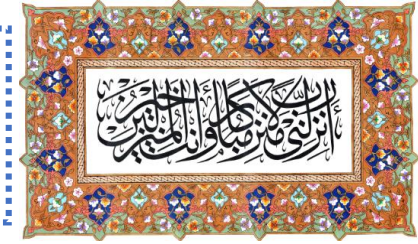 رب أنزلنی منزلا مبارکا وأنت خیر المنزلین